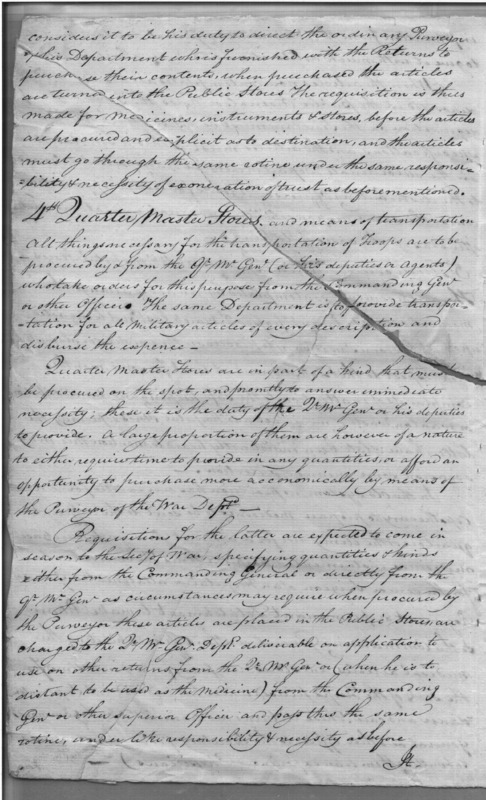 considers it to be his duty to direct the ordinary Purveyor
of his Department who is furnished with the Returns to
purchase their contents, when purchased the articles
are turned into the Public Stores The requisition is thus
made for medicines, instruments & stores, before the articles
are procured and explicit as to destination, and the articles
must go through the same rotine under the same, responsi-
-bility & necessity of exoneration of trust as before mentioned.
4th Quarter Master Stores, and means of transportation
All things necessary for the transportation of Troops are to be
procured by & from the Qr. Mr Genl (or his deputies or agents)
who take orders for this purpose from the Commanding Genl
or other Officer. The same Department is to provide transpor-
-tation for all Military articles of every description and
disburse the expence –
Quarter Master Stores are in part of a kind that must
be procured on the spot, and promtly to answer immediate
necessity; these it is the duty of the Qr Mr Genl or his deputies
to provide. A large proportion of them are however of a nature
to either require time to provide in any quantities, or afford an
opportunity to purchase more œconomically by means of
the Purveyor of the War Dept –
Requisitions for the latter are expected to come in
season to the Secy of War, specifying quantities & kinds
either from the Commanding General or directly from the
Qr. Mr Genl as circumstances may require when procured by
the Purveyor these articles are placed in the Public Stores, are
charged to the Qr Mr Genl Dept. deliverable on application to
use on other returns, from the Qr Mr Genl or (when he is to
distant to be used as the Medicine) from the Commanding
Genl or other Superior Officer and pass thro the same
rotine, under like responsibility & necessity as before